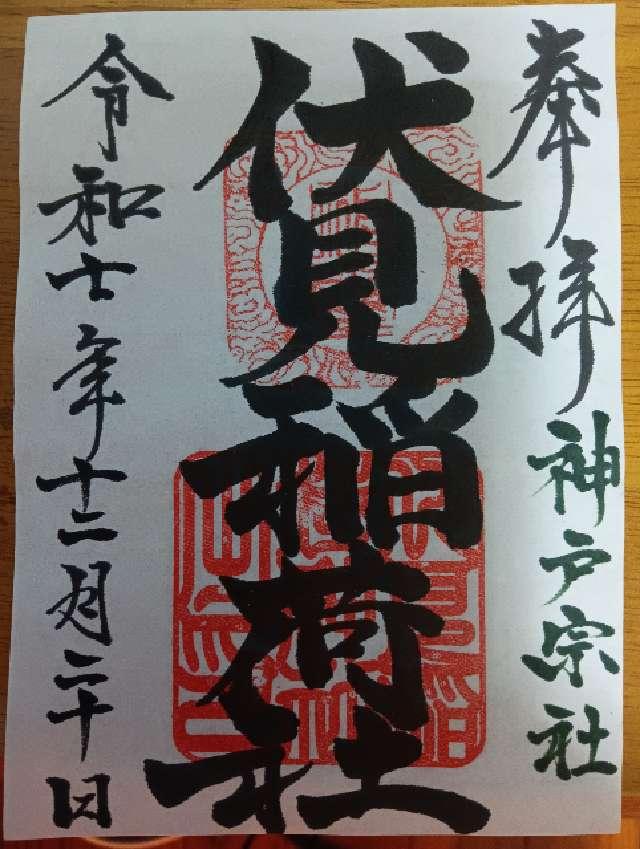 奉拝 神戸宗社
伏見稲荷社
令和七年十二月二十日